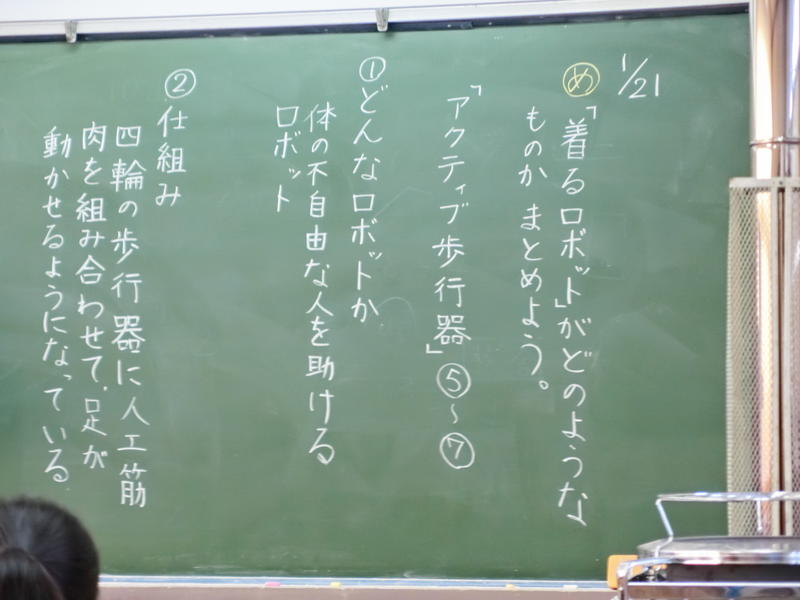 1/21
め「着るロボット」がどのような
ものか まとめよう。
「アクティブ歩行器」⑤~⑦
①どんなロボットか
体の不自由な人を助ける
ロボット
②仕組み
四輪の歩行器に人工筋
肉を組み合わせて、足が
動かせるようになっている。